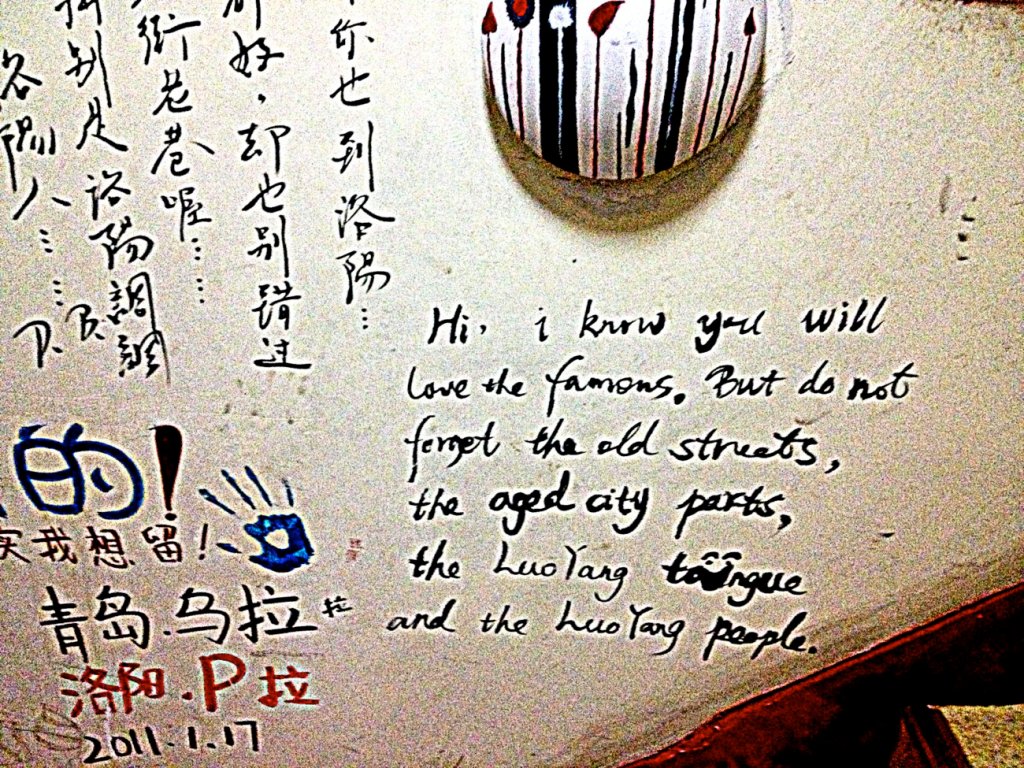 你也到洛陽…
都好,却也别錯过
街老巷喔……
别是洛陽調調
洛陽人……
Hi, i know you will
love the famous. But do not
forget the old streets,
the aged city parts,
the LuoYang toungue
and the LuoYang people.
的!
我想留!
青岛.乌拉拉
洛阳.P拉
2011.1.17